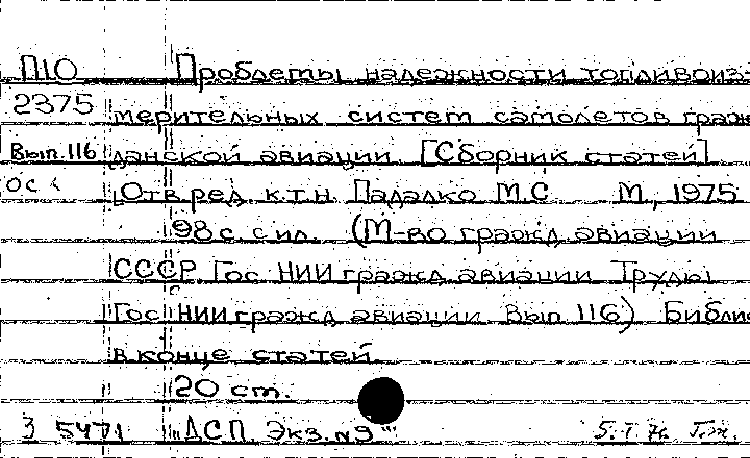 П10 Проблемы надежности топливоиз-
2375 мерительных систем самолетов граж
Вып.116 данской авиации. [Сборник статей]
ОС Отв. ред. к.т.н. Падалко М.С. М., 1975.
98 с. с ил. (М-во гражд. авиации
СССР. Гос НИИ гражд. авиации. Труды
Гос НИИ гражд. авиации. Вып. 116) Библио
в конце статей.
20 см.
3 5471 "ДСП. Экз.№9"